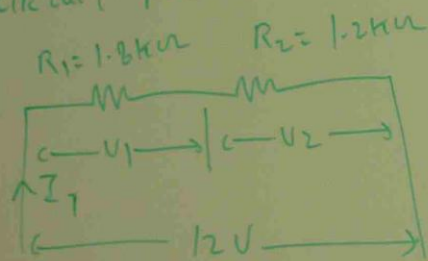 R₁ = 1.8KΩ R₂ = 1.2KΩ
V₁ V₂
I₁
12V